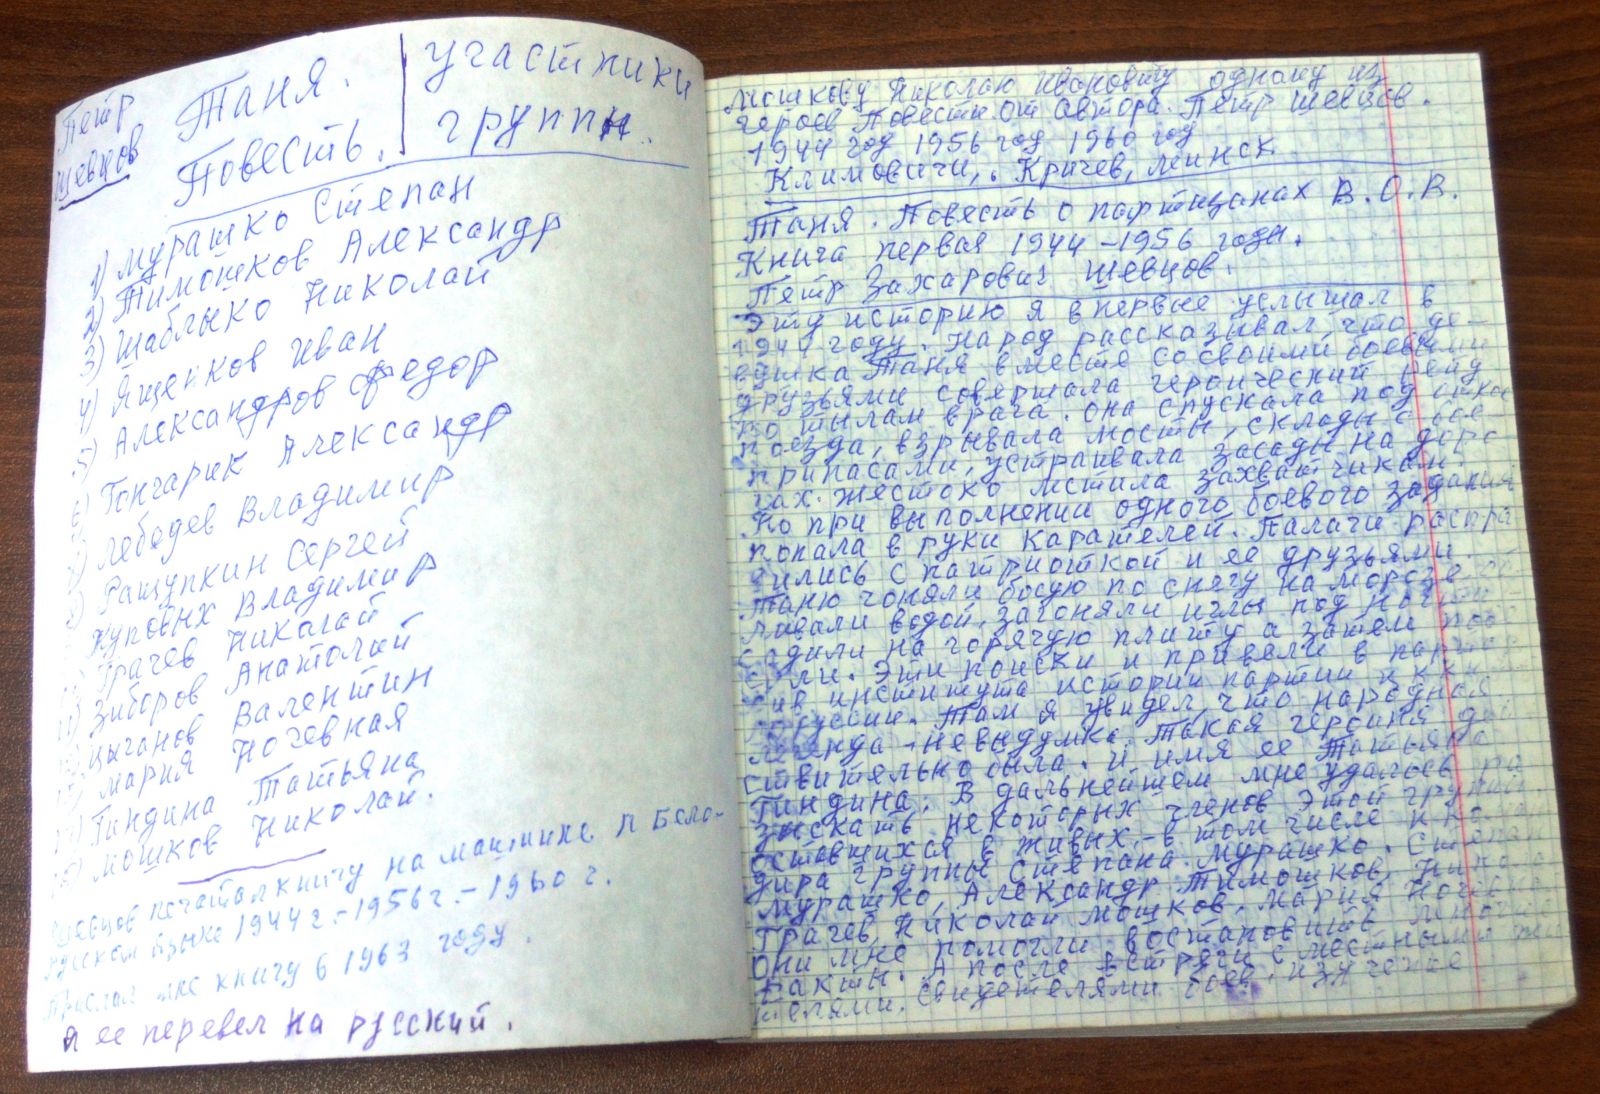 Пётр
Шевцов
Таня.
Повесть.
участники
группы.
1) Мурашко Степан
2) Тимошков Александр
3) Шаблыко Николай
4) Ященков Иван
5) Александров Федор
6) Гончарик Александр
7) Лебедев Владимир
8) Ращупкин Сергей
Куповых Владимир
Грачев Николай
11) Зиборов Анатолий
Цыганов Валентин
Мария Ночевная
Гиндина Татьяна
Мошков Николай.
Шевцов печатал книгу на машинке п Бело-
русском языке 1944 г. - 1956 г. - 1960 г.
Прислал мне книгу в 1963 году.
Я ее перевел на русский.
Мошкову Николаю Ивановичу одному из
героев Повести от автора. Пётр Шевцов.
1944 год 1956 год 1960 год
Климовичи, Кричев, Минск
Таня. Повесть о партизанах В.О.В.
Книга первая 1944-1956 годы.
Пётр Захарович Шевцов.
Эту историю я впервые услышал в
1944 году. Народ рассказывал, что де-
вушка Таня вместе со своими боевыми
друзьями совершала героический рейд
по тылам врага. Она спускала под откос
поезда, взрывала мосты, склады с бое
припасами, устраивала засады на доро
гах. Жестоко мстила захватчикам.
Но при выполнении одного боевого задания
попала в руки карателей. Палачи распра
вились с патриоткой и ее друзьями.
Таню гоняли босую по снегу на морозе
ливали водой, загоняли иглы под ногти
садили на горячую плиту а затем
Эти поиски и привели в пар
хив института истории партии п к
Там я увидел, что народная
легенда - невыдумка. Такая героиня дей
ствительно была. И имя ее Татьяна
Гиндина. В дальнейшем мне удалось ра
зыскать некоторых членов этой группы
оставшихся в живых,- в том числе и ко
дира группы Степана Мурашко. Степан
Мурашко, Александр Тимошков, Никола
Грачев, Николай Мошков, Мария Ночевна
Они мне помогли востановить многие
факты. А после встречи с местными жи
телями, свидетелями боев, изучение